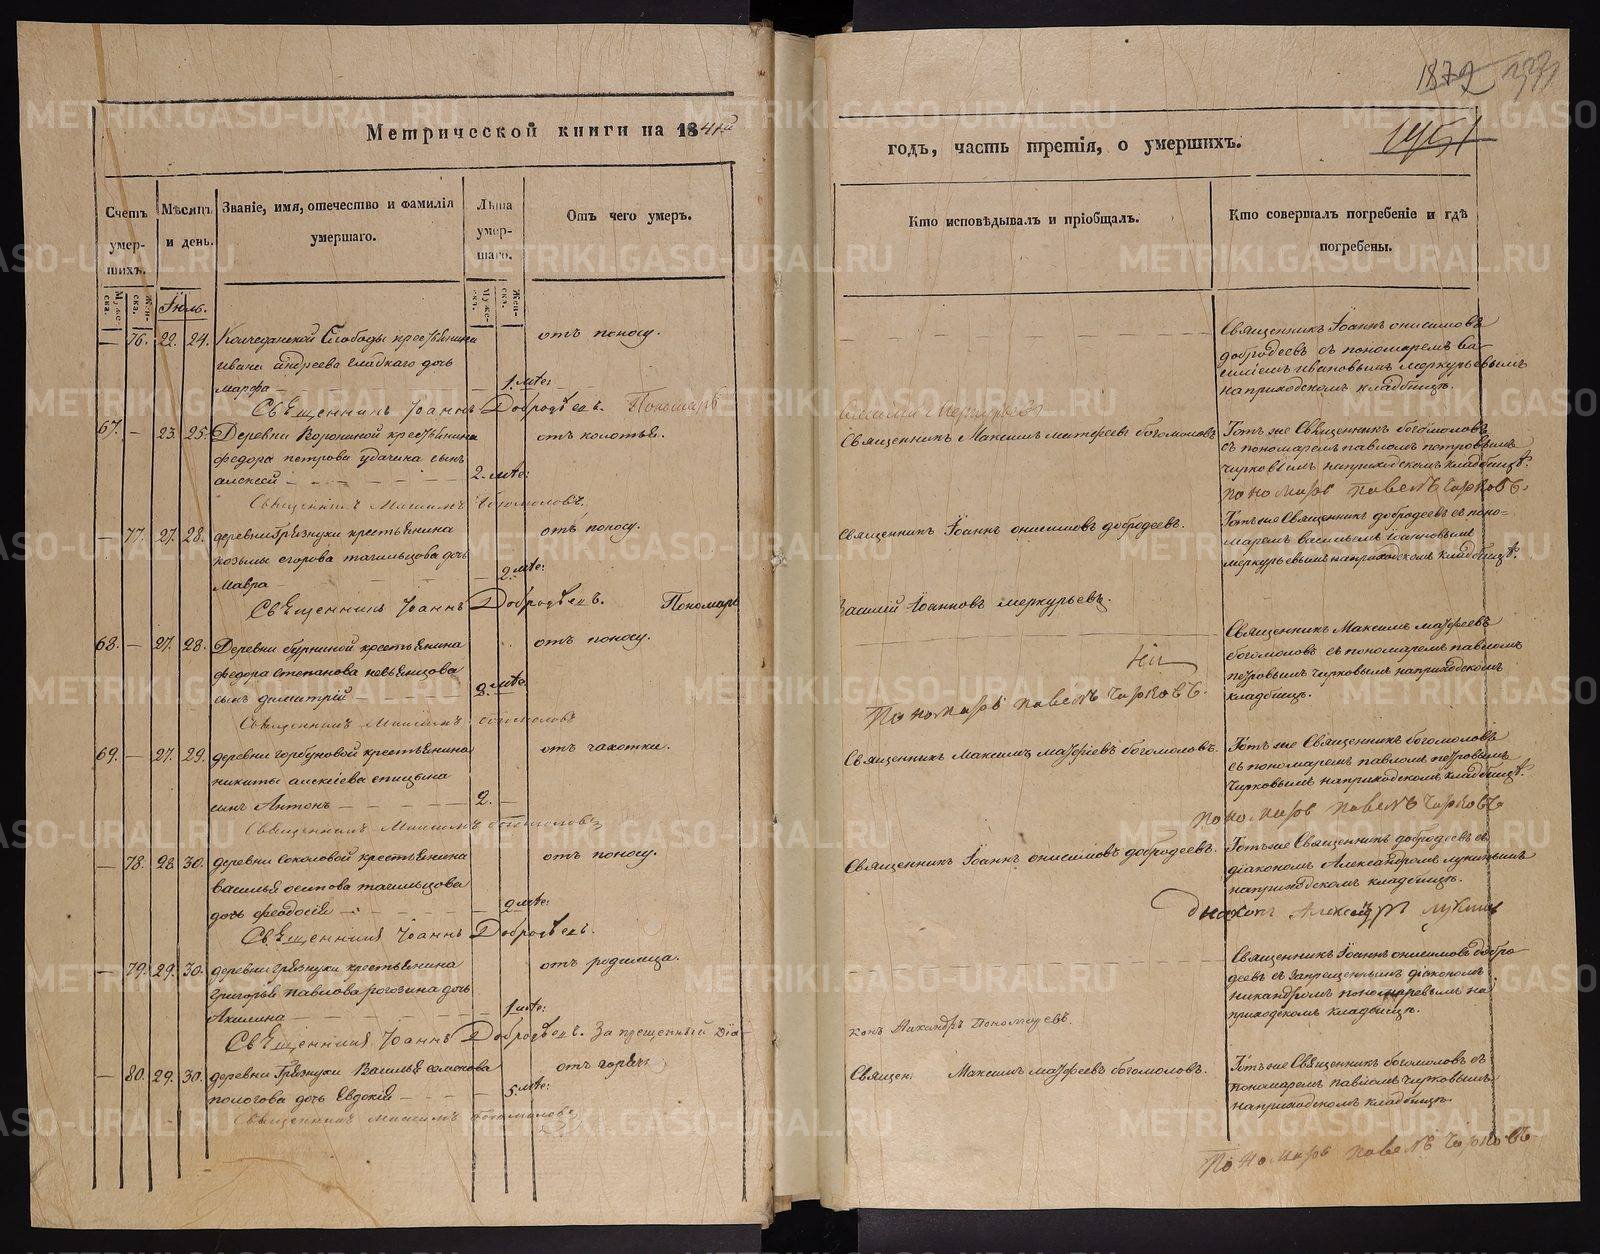 Метрической книги на 1841й
Счетъ умер-шихъ.
Мѣсяцъ и день.
Званіе, имя, отечество и фамилія умершаго.
Лѣта умер-шаго.
Отъ чего умеръ.
Муже-ска.
Жен-ска.
Іюль.
Муже-ск.
Жен-ска.
— 76. 22. 24. Колчеданской Слободы крестьянина
ивана андреева сладкаго дочь
марфа — 1. лѣтъ
отъ поносу.
Священникъ Іоаннъ Добродѣевъ. Пономарь
67. — 23. 25. Деревни Ворониной крестьянина
федора петрова удачина сынъ
алексей — 2. лѣтъ:
отъ колотья.
Священникъ Максимъ Богомоловъ.
— 77. 27. 28. деревни Грязнухи крестьянина
козьмы егорова тагильцова дочь
Мавра — 2. лѣтъ:
отъ поносу.
Священникъ Іоаннъ Добродѣевъ. Пономарь
68. — 27. 28. Деревни бурниной крестьянина
федора степанова невьянцова
сынъ димитрій — 2. лѣтъ
отъ поносу.
Священникъ Максимъ богомоловъ
69. — 27. 29. деревни горбуновой крестьянина
никиты алексіева спицына
сынъ Антонъ — 2. —
отъ чахотки.
Священникъ Максимъ богомоловъ
— 78. 28. 30. деревни соколовой крестьянина
василья осипова тагильцова
дочь феодосія — 2 лѣтъ:
отъ поносу.
Священникъ Іоаннъ Добродѣевъ.
— 79. 29. 30. деревни грязнухи крестьянина
григорья павлова рогозина дочь
Акилина — 1 лѣтъ:
отъ родимца.
Священникъ Іоаннъ Добродѣевъ. Запрещенный Діа-
— 80. 29. 30. деревни Грязнухи Василья семенова
пологова дочь Евдокія — 5. лѣтъ:
отъ горячки
Священникъ максимъ богомоловъ
1872
годъ, часть третія, о умершихъ.
Кто исповѣдывалъ и пріобщалъ.
Кто совершалъ погребеніе и гдѣ погребены.
Священникъ Іоаннъ онисимовъ
добродеевъ съ пономаремъ Ва-
силіемъ ивановымъ меркурьевымъ
на приходскомъ кладбищѣ.
Василій Меркурьевъ
Священникъ Максимъ матфеевъ богомоловъ
Тотъ же Священникъ богомоловъ
съ пономаремъ павломъ петровымъ
чирковымъ на приходскомъ кладбищѣ.
пономарь павелъ чирковъ.
Священникъ Іоаннъ онисимовъ добродеевъ.
Тотъ же Священникъ добродеевъ съ поно-
маремъ васильемъ іоанновымъ
меркурьевымъ на приходскомъ кладбищѣ.
Василій Іоанновъ меркурьевъ.
Священникъ Максимъ матфеевъ
богомоловъ съ пономаремъ павломъ
петровымъ чирковымъ на приходскомъ
кладбищѣ.
Пономарь павелъ чирковъ.
Священникъ Максимъ матфіевъ богомоловъ.
Тотъ же Священникъ богомоловъ
съ пономаремъ павломъ петровымъ
чирковымъ на приходскомъ кладбищѣ.
пономарь павелъ чирковъ
Священникъ Іоаннъ онисимовъ добродеевъ.
Тотъ же Священникъ добродеевъ съ
діакономъ Александромъ лукинымъ
на приходскомъ кладбищѣ.
Священникъ Іоаннъ онисимовъ добро-
деевъ съ запрещеннымъ діакономъ
никандромъ пономаревымъ на
приходскомъ кладбищѣ.
конъ Никандръ Пономаревъ.
Священ. Максимъ матфеевъ богомоловъ.
Тотъ же Священникъ богомоловъ съ
пономаремъ павломъ чирковымъ
на приходскомъ кладбищѣ.
Пономарь павелъ чирковъ.
METRIKI.GASO-URAL.RU